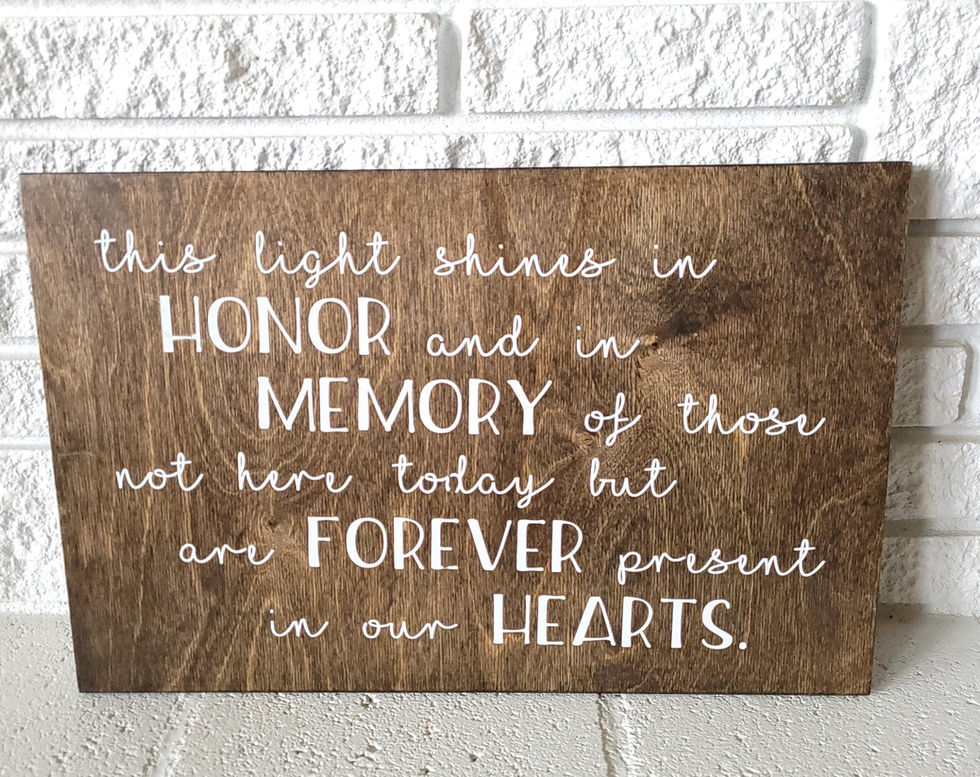 this light shines in
HONOR and in
MEMORY of those
not here today but
are FOREVER present
in our HEARTS.